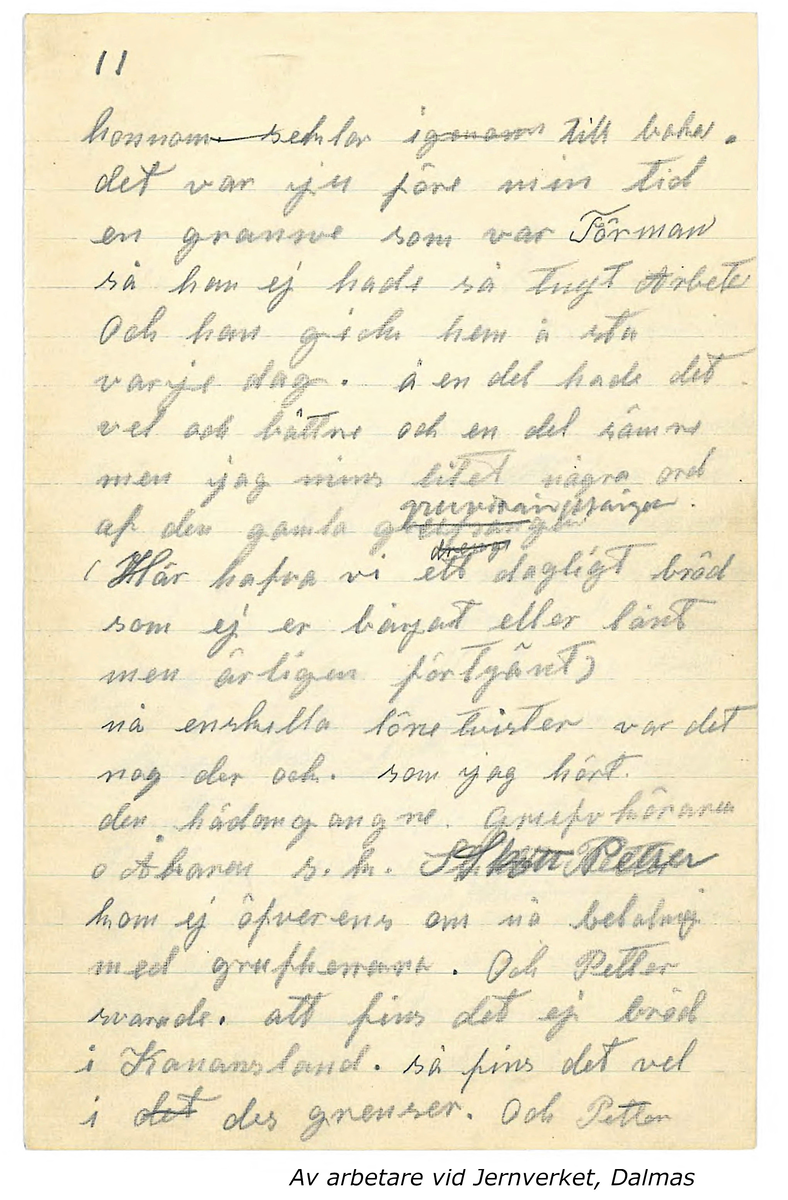 11
honnom seklar igenom till baka.
det var ju före min tid
en granne som var Förman
så han ej hade så tugt Arbete
Och han gick hem å sta
varje dag. å en del hade det
vel och bättre och en del sämre
men jag mins litet några ord
af den gamla
(Här hafva vi ett dagligt bröd
som ej er bärgat eller lånt
men ärligen förtgänt)
nå enskilla löne tvister var det
nog der och. som jag hört.
den hädangangne. Grufv köraren
o Åkaren s. k. Petter
kom ej öfverens om nå betalnig
med grufherrarna. Och Petter
svarade. att fins det ej bröd
i Kanansland. så fins det vel
i det des grenser. Och Petter
Av arbetare vid Jernverket, Dalmas